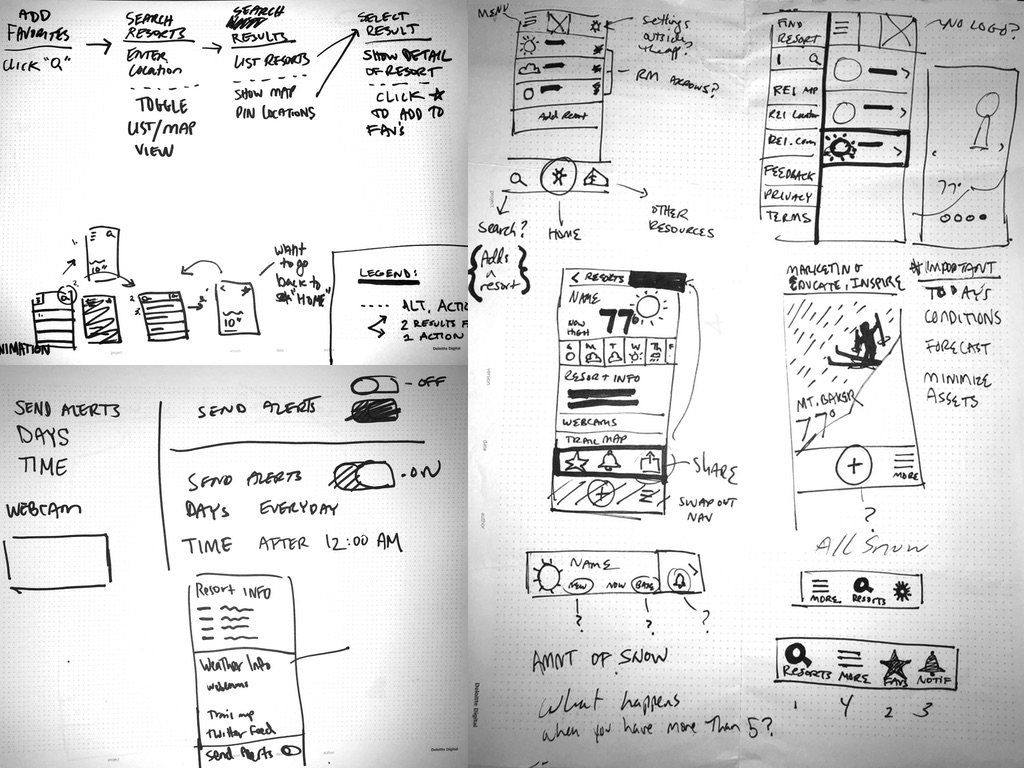 ADD
FAVORITES
CLICK "Q"
SEARCH
RESORTS
ENTER
LOCATION
TOGGLE
LIST/MAP
VIEW
SEARCH
RESULTS
LIST RESORTS
SHOW MAP
PIN LOCATIONS
SELECT
RESULT
SHOW DETAIL
OF RESORT
CLICK ★
TO ADD TO
FAV'S
1.
2.
10"
WANT
TO GO
BACK TO
"HOME"
10"
LEGEND:
ALT. ACTIO
2 RESULTS F
1 ACTION
NIMATION
Deloitte Digital
SEND ALERTS
DAYS
TIME
WEBCAM
- OFF
SEND ALERTS
SEND ALERTS
- ON
DAYS EVERYDAY
TIME AFTER 12:00 AM
Resort INFO
Weather Info
webcams
Trail map
Twitter Feed
Send Alerts
Deloitte Digital
MENU
SETTINGS
OUTSIDE
THE APP?
RM ARROWS?
Add Resort
Search?
Adds
a
resort
HOME
OTHER
RESOURCES
FIND
RESORT
REI MP
REI Locator
REI.com
FEEDBACK
PRIVACY
TERMS
NO LOGO?
77°
< RESORTS
NAME
NOW
HIGH
77°
S M T W Th F
RESORT INFO
WEBCAMS
TRAIL MAP
SHARE
SWAP OUT
NAV
MARKETING
EDUCATE, INSPIRE
MT. BAKER
77°
MORE
?
* IMPORTANT
TODAY'S
CONDITIONS
FORECAST
MINIMIZE
ASSETS
NAME
NEW NOW BASE
? ? ?
AMNT OF SNOW
What happens
when you have more than 5?
All Snow
MORE RESORTS
RESORTS MORE FAVS NOTIF
1 4 2 3
Deloitte Digital